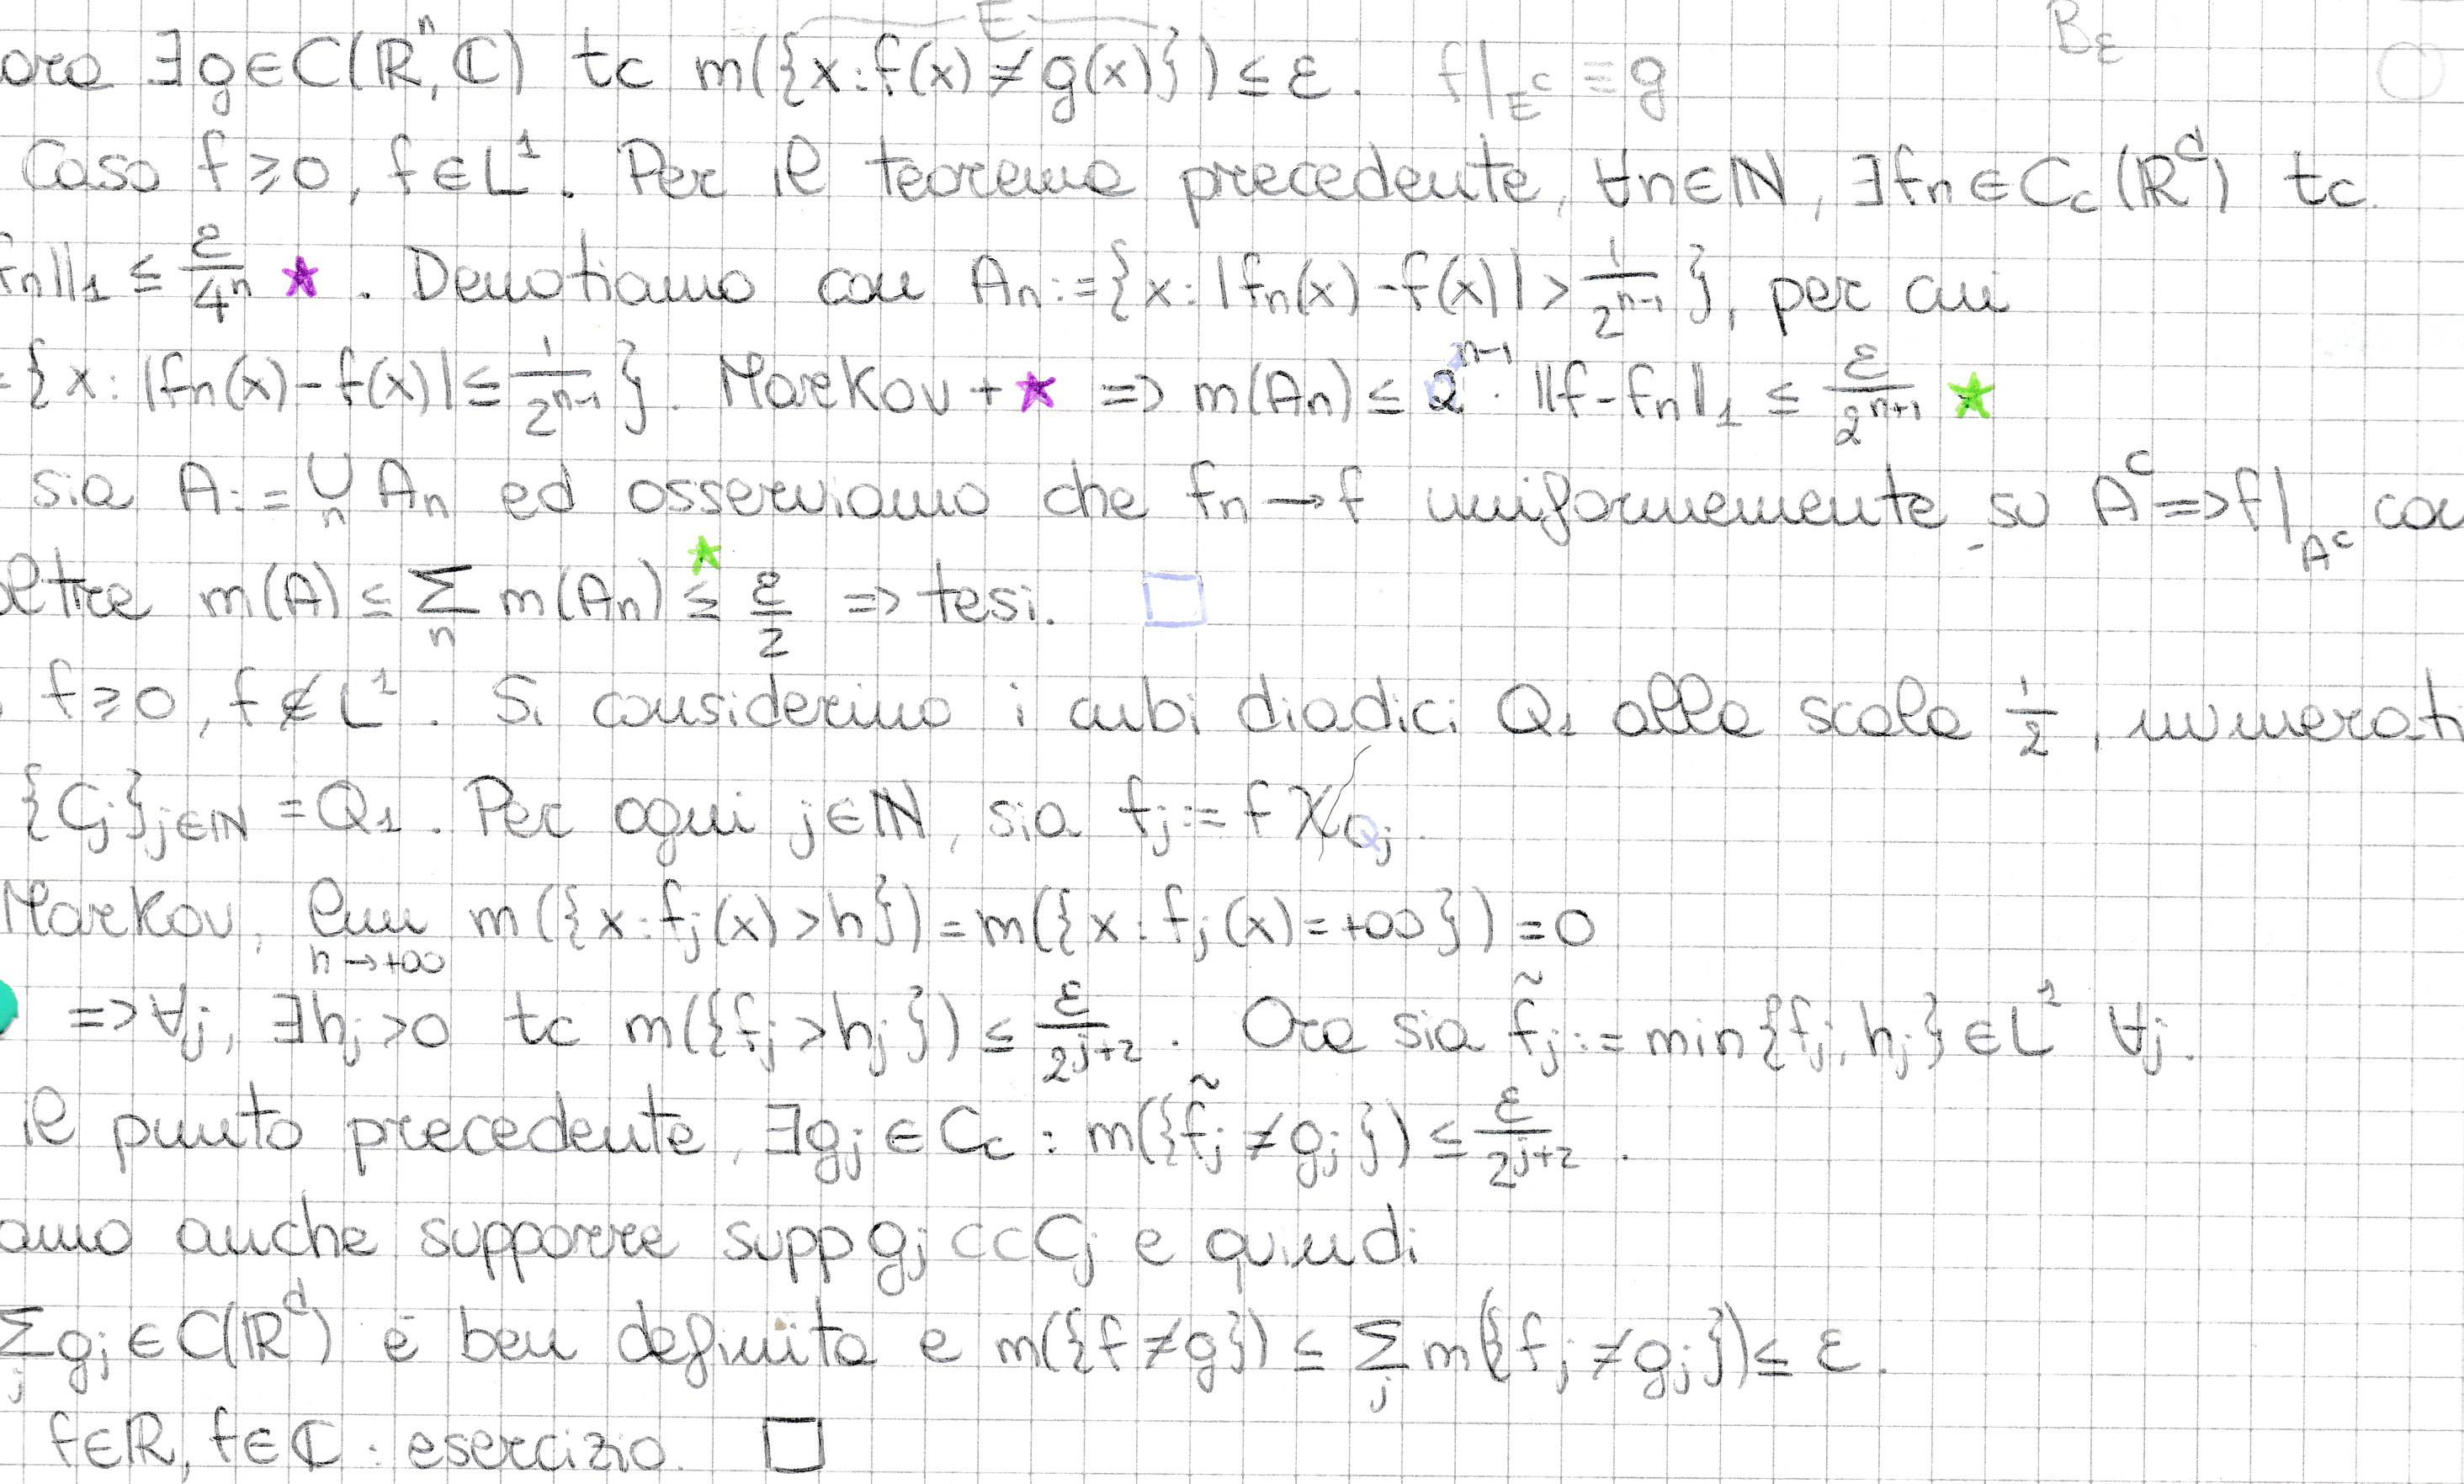 E B_ε
ora ∃g∈C(ℝⁿ, ℂ) tc m({x: f(x) ≠ g(x)}) ≤ ε. f|_{E^c} ≡ g
Caso f ≥ 0, f ∈ L¹. Per il teorema precedente, ∀n∈ℕ, ∃fn ∈ C_c(ℝ^d) tc
fn||₁ ≤ ε/4ⁿ ★. Denotiamo con An := {x: |fn(x) - f(x)| > 1/2^{n-1}}, per cui
= {x: |fn(x) - f(x)| ≤ 1/2^{n-1}}. Markov + ★ => m(An) ≤ 2^{n-1} · ||f - fn||₁ ≤ ε/2^{n+1} ★
sia A := ∪_n An ed osserviamo che fn → f uniformemente su A^c => f|_{A^c} con
oltre m(A) ≤ Σ_n m(An) ≤★ ε/2 => tesi. □
f ≥ 0, f ∉ L¹. Si considerino i cubi diadici Q₁ alla scala 1/2, numerati
{Cj}_{j∈ℕ} = Q₁. Per ogni j∈ℕ, sia fj := f χ_{Qj}.
Markov, lim_{h→+∞} m({x: fj(x) > h}) = m({x: fj(x) = +∞}) = 0
=> ∀j, ∃hj > 0 tc m({fj > hj}) ≤ ε/2^{j+2}. Ora sia f̃j := min{fj, hj} ∈ L¹ ∀j.
il punto precedente, ∃gj ∈ C_c : m({f̃j ≠ gj}) ≤ ε/2^{j+2}.
amo anche supporre supp gj ⊂⊂ Cj e quindi
Σ_j gj ∈ C(ℝ^d) è ben definita e m({f ≠ g}) ≤ Σ_j m({fj ≠ gj}) ≤ ε.
f∈ℝ, f∈ℂ : esercizio. □